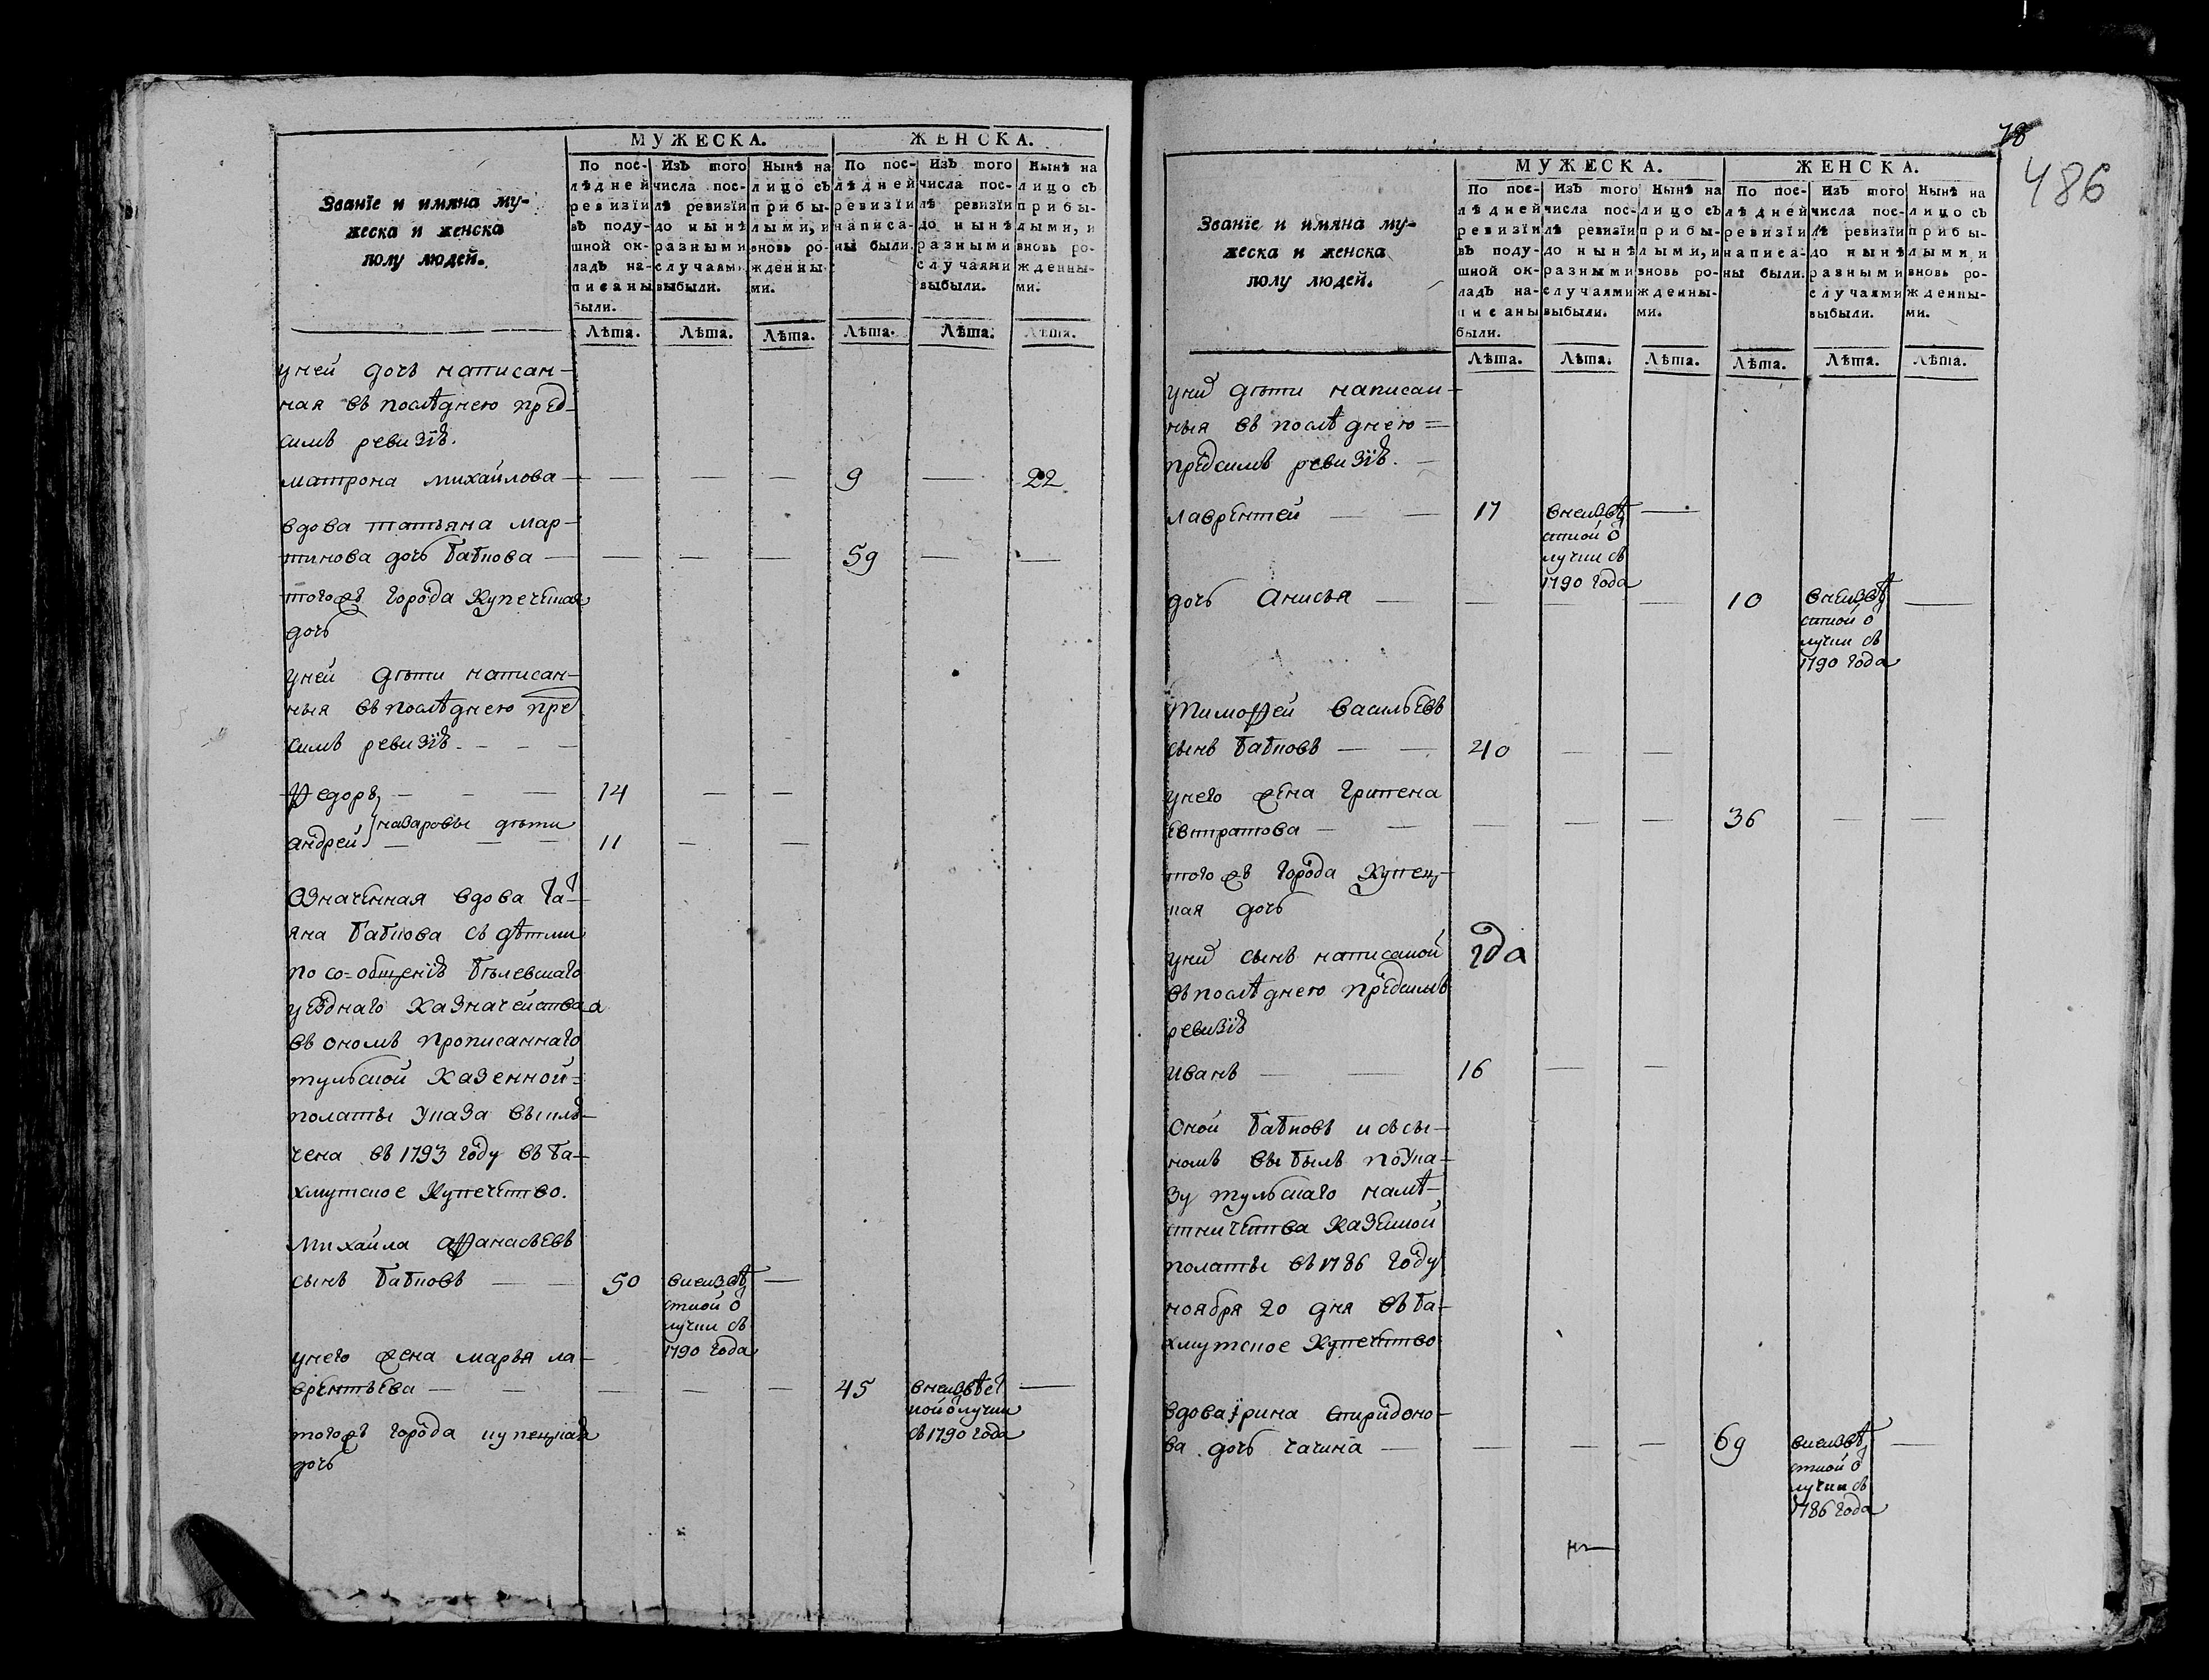 МУЖЕСКА. ЖЕНСКА.
Званїе и имяна му-
жеска и женска
полу людей.
По пос-
лѣдней
ревизїи
въ поду-
шной ок-
ладъ на-
писаны
были.
Изъ того
числа пос-
лѣ ревизїи
до нынѣ
разными
случаями
выбыли.
Нынѣ на
лицо съ
прибы-
лыми, и
вновь ро-
жденны-
ми.
По пос-
лѣдней
ревизїи
написа-
ны были.
Изъ того
числа пос-
лѣ ревизїи
до нынѣ
разными
случаями
выбыли.
Нынѣ на
лицо съ
прибы-
лыми, и
вновь ро-
жденны-
ми.
Лѣта. Лѣта. Лѣта. Лѣта. Лѣта. Лѣта.
уней дочь написан-
ная въ последнею пред
симъ ревизїѣ.
матрона михайлова — — — — 9 — 22
вдова татьяна мар-
тинова дочь бабкова — — — — 59 — —
тогожъ города купеческая
дочь
уней дѣти написан-
ныя въ последнею пре
симъ ревизїѣ - - -
Федоръ - - — 14 — —
назаровы дѣти
андрей — — — 11 — —
Означенная вдова Та-
яна бабкова съ дѣтми
по со-общенїѣ белевскаго
уезднаго Казначейства
въ ономъ прописаннаго
тульской Казенной =
полаты указа выклю-
чена въ 1793 году въ ба-
хмутское Купечество.
Михаила афанасьевъ
сынъ бабковъ — — 50 внеизвѣ —
стной о
лучки съ
1790 года
унего жена марья ла-
врентьева — — — — — 45 внеизвѣст —
ной олучки
съ 1790 года
тогожъ города купецкая
дочь
78
486
МУЖЕСКА. ЖЕНСКА.
Званїе и имяна му-
жеска и женска
полу людей.
По пос-
лѣдней
ревизїи
въ поду-
шной ок-
ладъ на-
писаны
были.
Изъ того
числа пос-
лѣ ревизїи
до нынѣ
разными
случаями
выбыли.
Нынѣ на
лицо съ
прибы-
лыми, и
вновь ро-
жденны-
ми.
По пос-
лѣдней
ревизїи
написа-
ны были.
Изъ того
числа пос-
лѣ ревизїи
до нынѣ
разными
случаями
выбыли.
Нынѣ на
лицо съ
прибы-
лыми и
вновь ро-
жденны-
ми.
Лѣта. Лѣта. Лѣта. Лѣта. Лѣта. Лѣта.
уних дѣти написан-
ныя въ последнею =
предсимъ ревизїѣ. —
лаврентей — — 17 внеизвѣ —
стной о
лучки съ
1790 года
дочь Анисья — — — — 10 внеизвѣ —
стной о
лучки съ
1790 года
Тимофей васильевъ
сынъ бабковъ — — 40 — —
унего жена Грипена
евтратова — — — — — 36 — —
того жъ города Купец-
кая дочь
уних сынъ написаной года
въ последнею предсимъ
ревизїѣ
иванъ — — 16 — —
Оной бабковъ и съ сы-
номъ выбылъ по ука-
зу тульскаго намѣ-
стничества Казенной
полаты въ 1786 году
ноября 20 дня въ ба-
хмутское Купечество
вдова ірина спиридоно-
ва дочь чачина — — — — 69 внеизвѣ —
стной о
лучки съ
1786 года